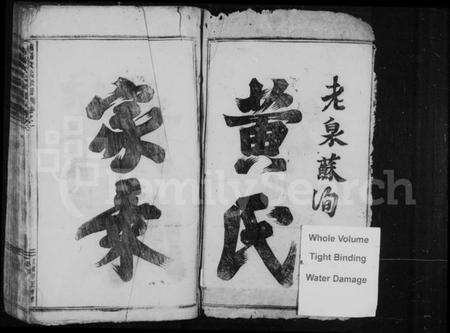 老泉蘇洵
黄氏
家乘
Whole Volume
Tight Binding
Water Damage
FamilySearch